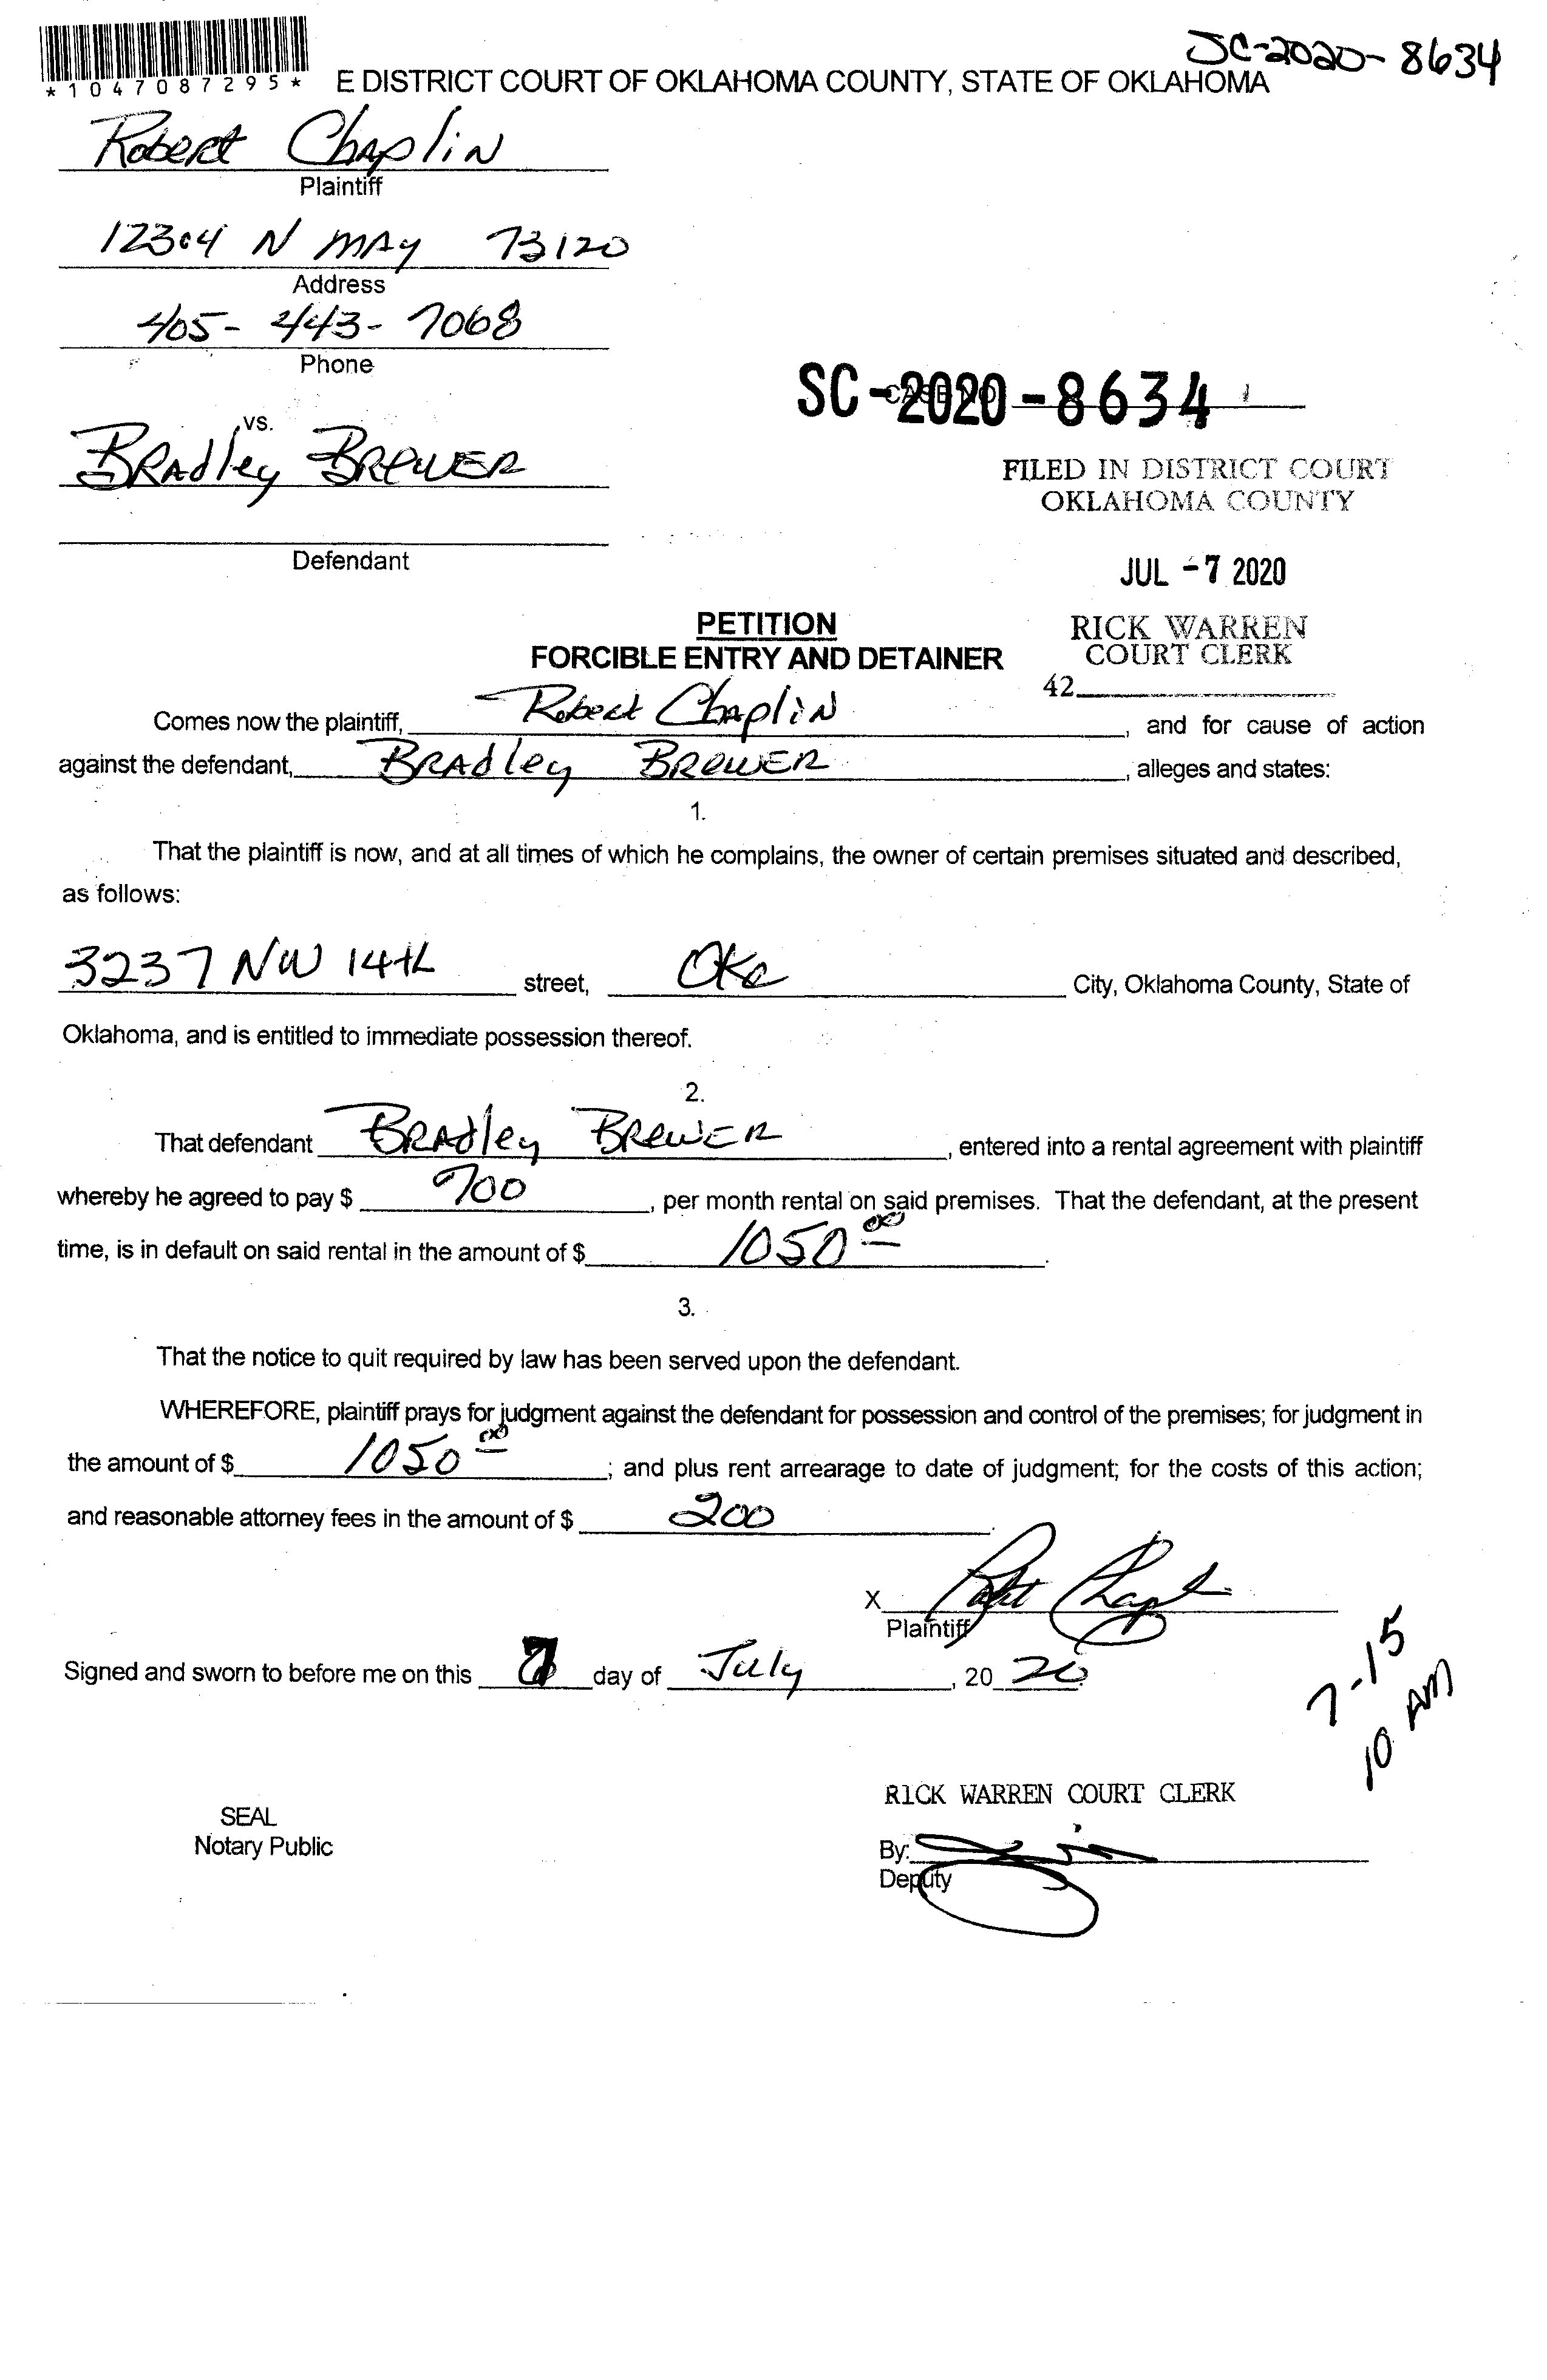 SC-2020-8634
*1047087295*
E DISTRICT COURT OF OKLAHOMA COUNTY, STATE OF OKLAHOMA
Robert Chaplin
Plaintiff
12304 N MAy 73120
Address
405-443-7068
Phone
vs.
SC-2020-8634
CASE NO.
BRAdley BREWER
FILED IN DISTRICT COURT
OKLAHOMA COUNTY
Defendant
JUL -7 2020
PETITION
FORCIBLE ENTRY AND DETAINER
RICK WARREN
COURT CLERK
42
Comes now the plaintiff, Robert Chaplin, and for cause of action
against the defendant, BRAdley BREWER, alleges and states:
1.
That the plaintiff is now, and at all times of which he complains, the owner of certain premises situated and described,
as follows:
3237 NW 14th street, OKC City, Oklahoma County, State of
Oklahoma, and is entitled to immediate possession thereof.
2.
That defendant BRAdley BREWER, entered into a rental agreement with plaintiff
whereby he agreed to pay $ 700, per month rental on said premises. That the defendant, at the present
time, is in default on said rental in the amount of $ 1050 00.
3.
That the notice to quit required by law has been served upon the defendant.
WHEREFORE, plaintiff prays for judgment against the defendant for possession and control of the premises; for judgment in
the amount of $ 1050 00; and plus rent arrearage to date of judgment; for the costs of this action;
and reasonable attorney fees in the amount of $ 200.
X Robert Chaplin
Plaintiff
Signed and sworn to before me on this 7 day of July, 20 20
7-15
10 AM
RICK WARREN COURT CLERK
SEAL
Notary Public
By:
Deputy